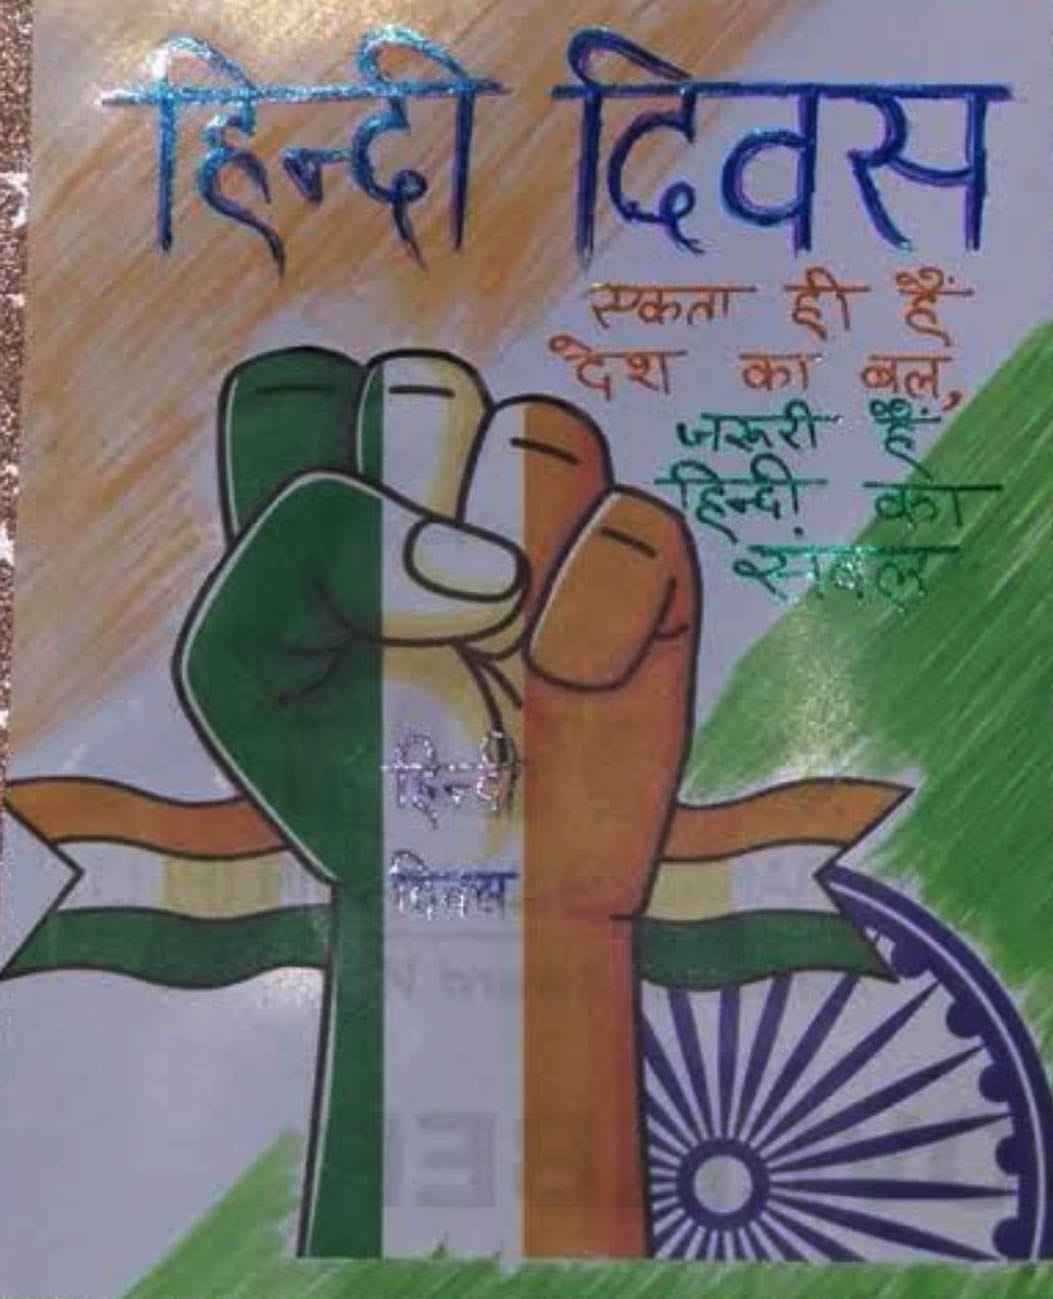 हिन्दी दिवस
एकता ही हैं
देश का बल,
जरूरी हैं
हिन्दी का
संबल
हिन्दी
दिवस